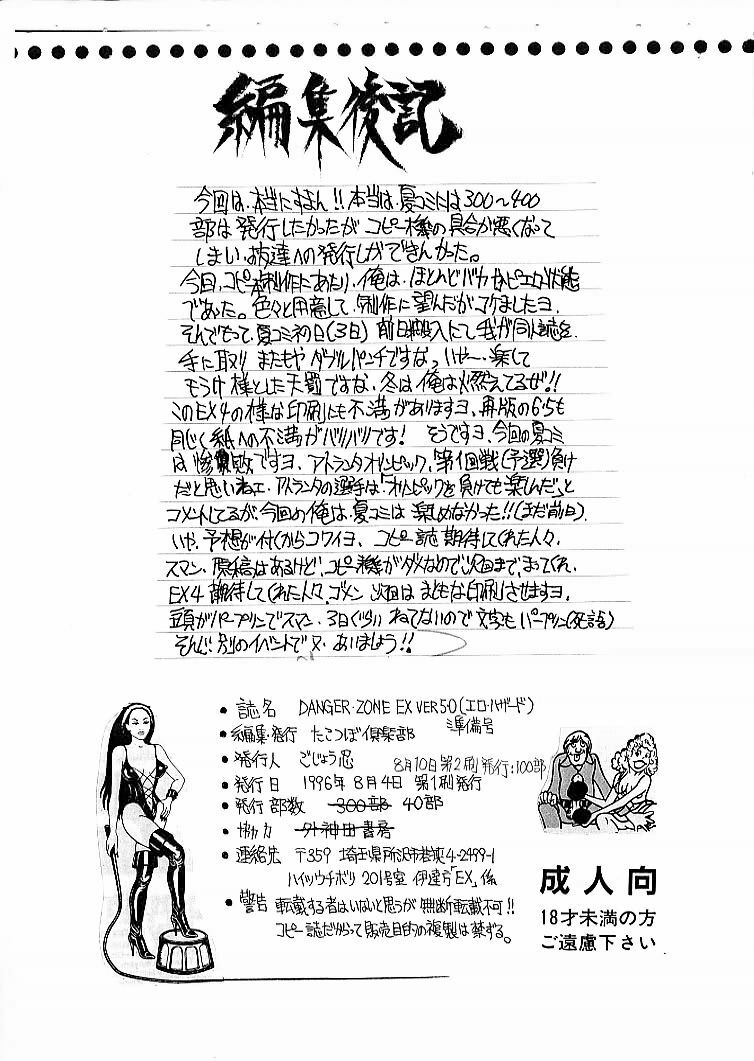 編集後記
今回は、本当にすまん!!本当は、夏コミには300〜400
部は発行したかったが コピー機の具合が悪くなって
しまい、お友達への発行しかできんかった。
今回、コピー本制作にあたり、俺は、ほとんどバカかピエロ状態
であった。色々と用意して、制作に望んだがコケましたヨ.
そんでもって、夏コミ初日(3日) 前日搬入にて 我が同人誌を
手に取り またもや ダブルパンチですなっ いやー、楽して
もうけ様とした天罰ですな、冬は、俺は、燃えてるぜ!!
このEX4の様な印刷にも不満がありますヨ、再版の6・5も
同じく紙への不満がバリバリです! そうですヨ、今回の夏コミ
は、惨敗ですヨ、アトランタオリンピック、第1回戦(予選)負け
だと思いねェ、アトランタの選手は、「オリンピックを負けても楽しんだ」と
コメントしてるが、今回の俺は、夏コミは 楽しめなかった!!(まだ前日).
いや、予想が付くからコワイヨ、コピー誌 期待してくれた人々、
スマン、原稿はあるけど、コピー機がダメなので次回まで、まってくれ、
EX4 期待してくれた人々、ゴメン 次回は まともな印刷させますヨ、
頭がパープリンでスマン、3日ぐらい ねてないので 文字も パープリン(死語)
そんじゃ 別のイベントで 又、あいましょう!!
・誌名 DANGER・ZONE EX VER5・0(エロ・ハザード)
準備号
・編集・発行 たこつぼ倶楽部
・発行人 ごじょう忍
8月10日第2刷発行:100部
・発行日 1996年 8月4日 第1刷発行
・発行部数 300部 40部
・協力 外神田書房
・連絡先 〒359 埼玉県所沢市若狭4-2499-1
ハイツウチボリ 201号室 伊達方「EX」係
・警告 転載する者はいないと思うが 無断転載不可!!
コピー誌だからって 販売目的の複製は禁ずる。
成人向
18才未満の方
ご遠慮下さい